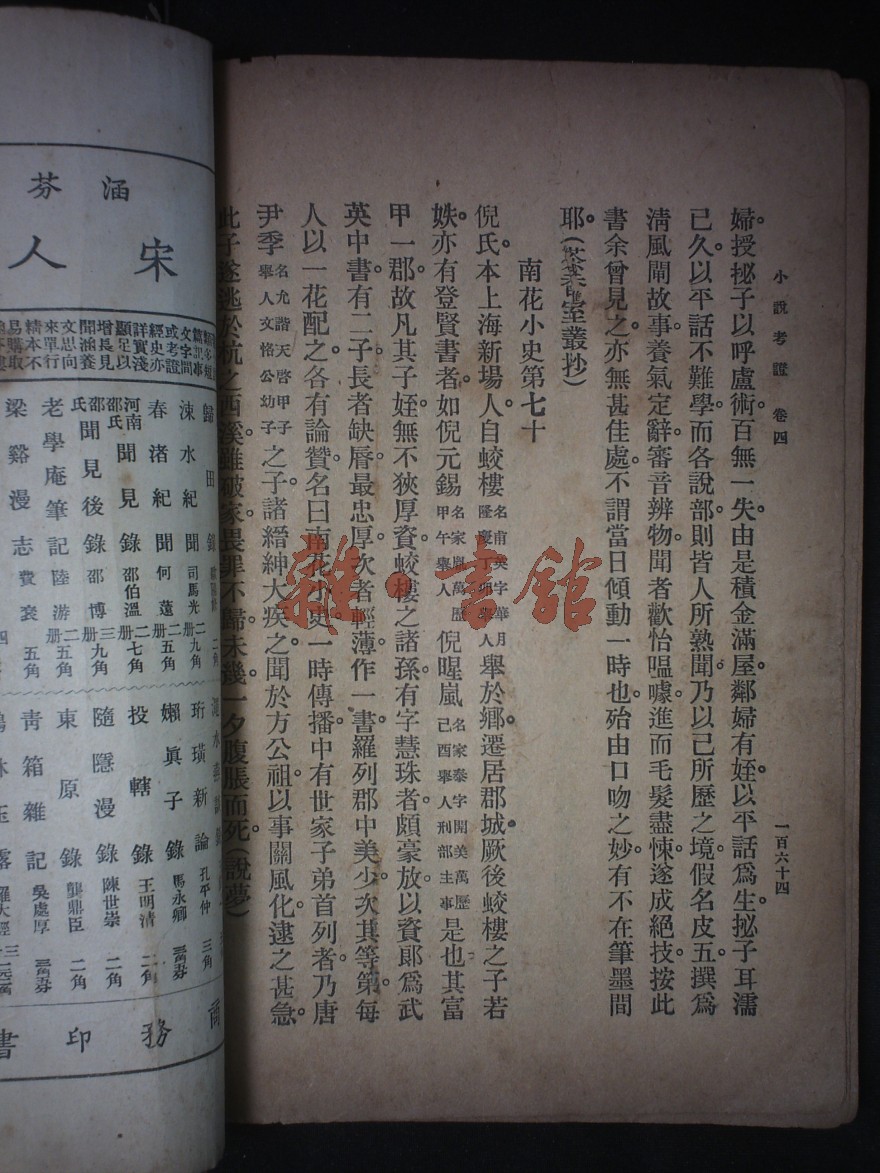 小說考證 卷四
一百六十四
婦。授㧙子以呼盧術。百無一失。由是積金滿屋。鄰婦有姪。以平話爲生。㧙子耳濡
已久。以平話不難學。而各說部。則皆人所熟聞。乃以己所歷之境。假名皮五。撰爲
淸風閘故事。養氣定辭。審音辨物。聞者歡怡嗢噱。進而毛髮盡悚。遂成絕技。按此
書余曾見之。亦無甚佳處。不謂當日傾動一時也。殆由口吻之妙。有不在筆墨間
耶。
室叢抄)
南花小史第七十
倪氏本上海新場人。自蛟樓
舉於鄉。遷居郡城。厥後蛟樓之子若
姝。亦有登賢書者。如倪元錫
甲午舉人
倪暒嵐
己酉舉人刑部主事
是也。其富
甲一郡。故凡其子姪。無不狹厚資。蛟樓之諸孫。有字慧珠者。頗豪放。以資郞爲武
英中書。有二子。長者缺脣。最忠厚。次者輕薄。作一書。羅列郡中美少。次其等第。每
人以一花配之。各有論贊。名曰南花小史。一時傳播。中有世家子弟首列者。乃唐
尹季
名允諧天啓甲子
舉人文恪公幼子
之子。諸縉紳大疾之。聞於方公祖。以事關風化。逮之甚急。
此子遂逃於杭之西溪。雖破家。畏罪不歸。未幾。一夕腹脹而死。(說夢)
雜·書館
涵芬
宋人
經史亦
詳實淺
顯足以
增長見
聞涵養
文思向
來單行
精本不
易購取
歸田錄 二角
涑水紀聞 司馬光 二册 九角
春渚紀聞 何薳 二册 五角
河南邵氏聞見錄 邵伯溫 二册 七角
邵氏聞見後錄 邵博 三册 九角
老學庵筆記 陸游 二册 五角
梁谿漫志 費袞
珩璜新論 孔平仲 三角
嬾眞子錄 馬永卿
投轄錄 王明清 二角
隨隱漫錄 陳世崇 二角
東原錄 龔鼎臣 二角
青箱雜記 吳處厚
羅大經
商務印書